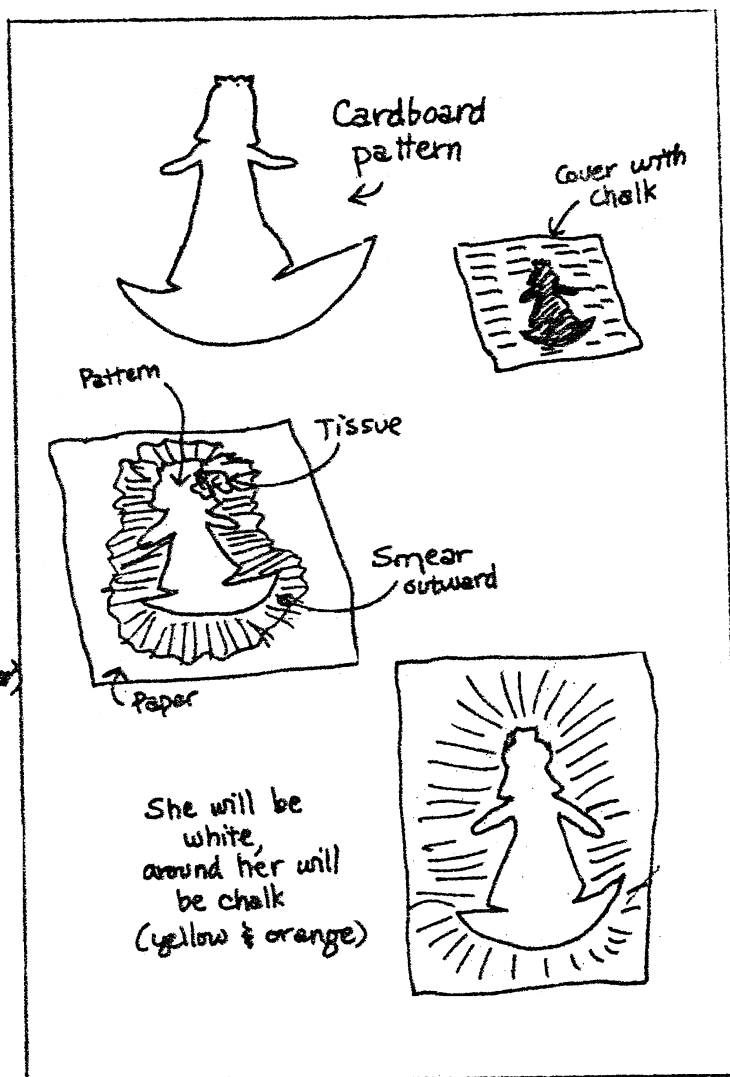 Cardboard
pattern
Cover with
chalk
Pattern
Tissue
Smear
outward
Paper
She will be
white,
around her will
be chalk
(yellow & orange)